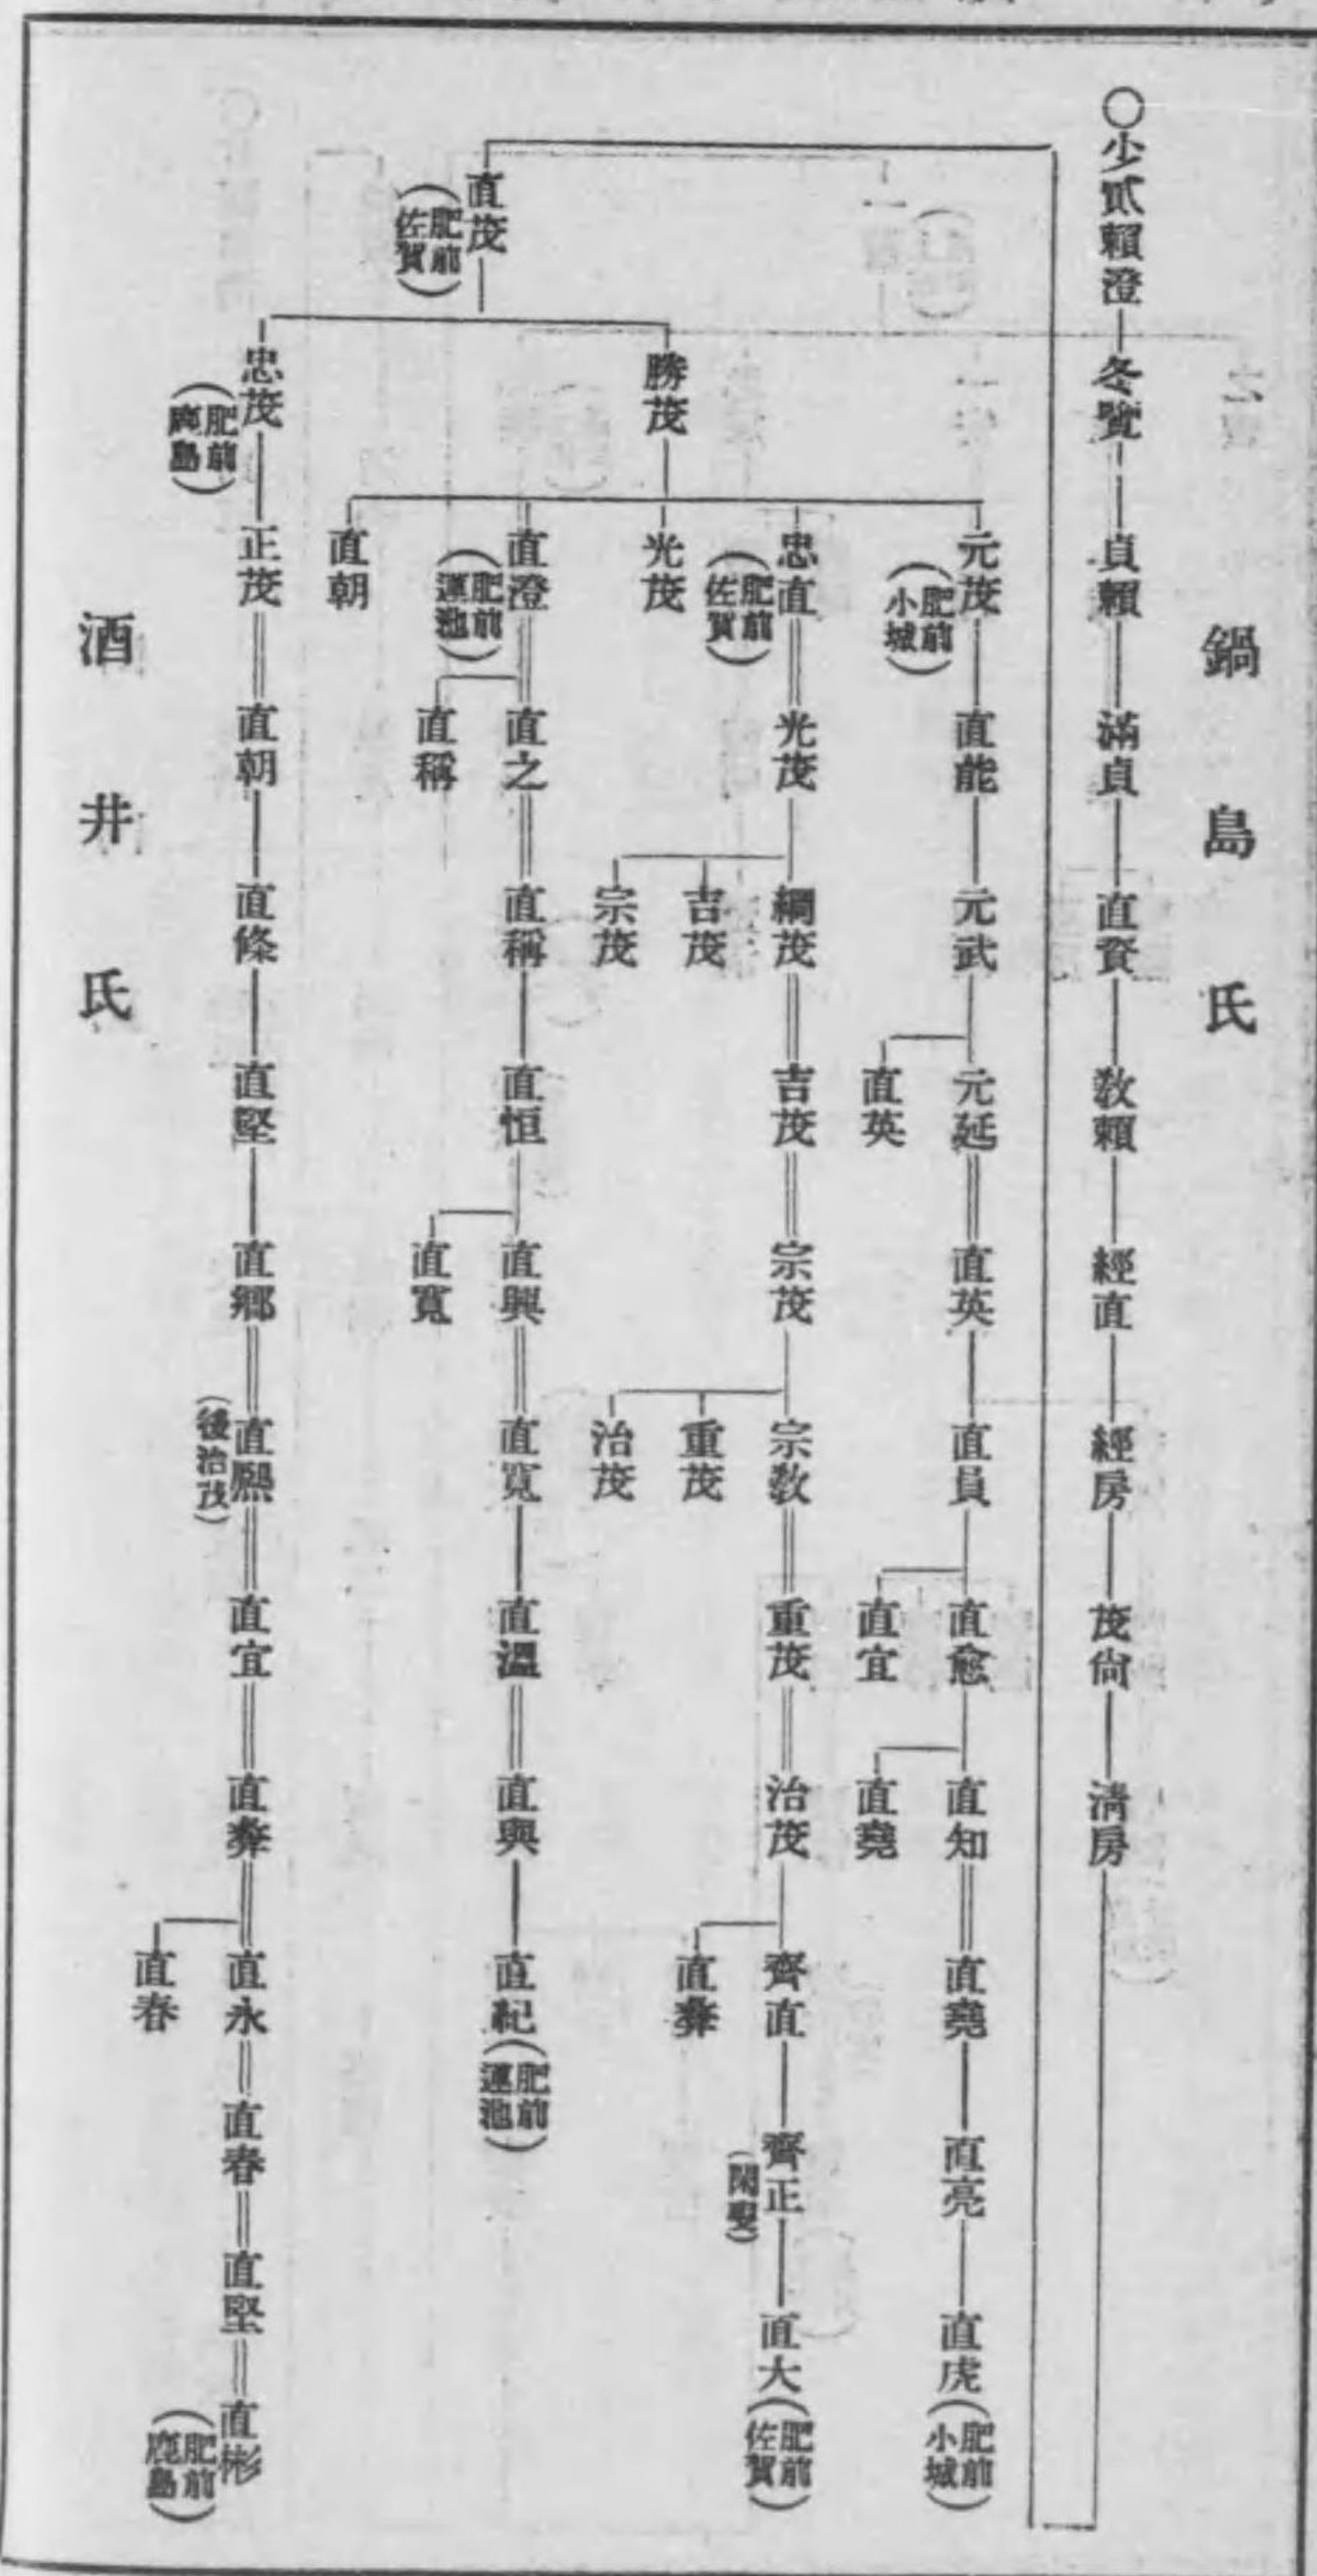 鍋島氏
○少貳賴澄―冬覽―貞賴＝滿貞―直資―敎賴―經直―經房―茂尙―淸房
直茂(肥前佐賀)
勝茂
元茂(肥前小城)―直能―元武―元延＝直英―直員―直愈―直知＝直堯―直亮―直虎(肥前小城)
直英
直宜
直堯
忠直(肥前佐賀)＝光茂―綱茂＝吉茂＝宗茂―宗敎＝重茂＝治茂―齊直―齊正(閑叟)―直大(肥前佐賀)
吉茂
重茂
直彜
宗茂
治茂
光茂
直澄(肥前蓮池)＝直之＝直稱―直恒―直興＝直寬―直溫＝直與―直紀(肥前蓮池)
直稱
直寬
直朝
忠茂(肥前鹿島)―正茂＝直朝―直條―直堅―直鄕＝直熙(後治茂)＝直宜＝直彜＝直永＝直春＝直堅＝直彬(肥前鹿島)
直春
酒井氏